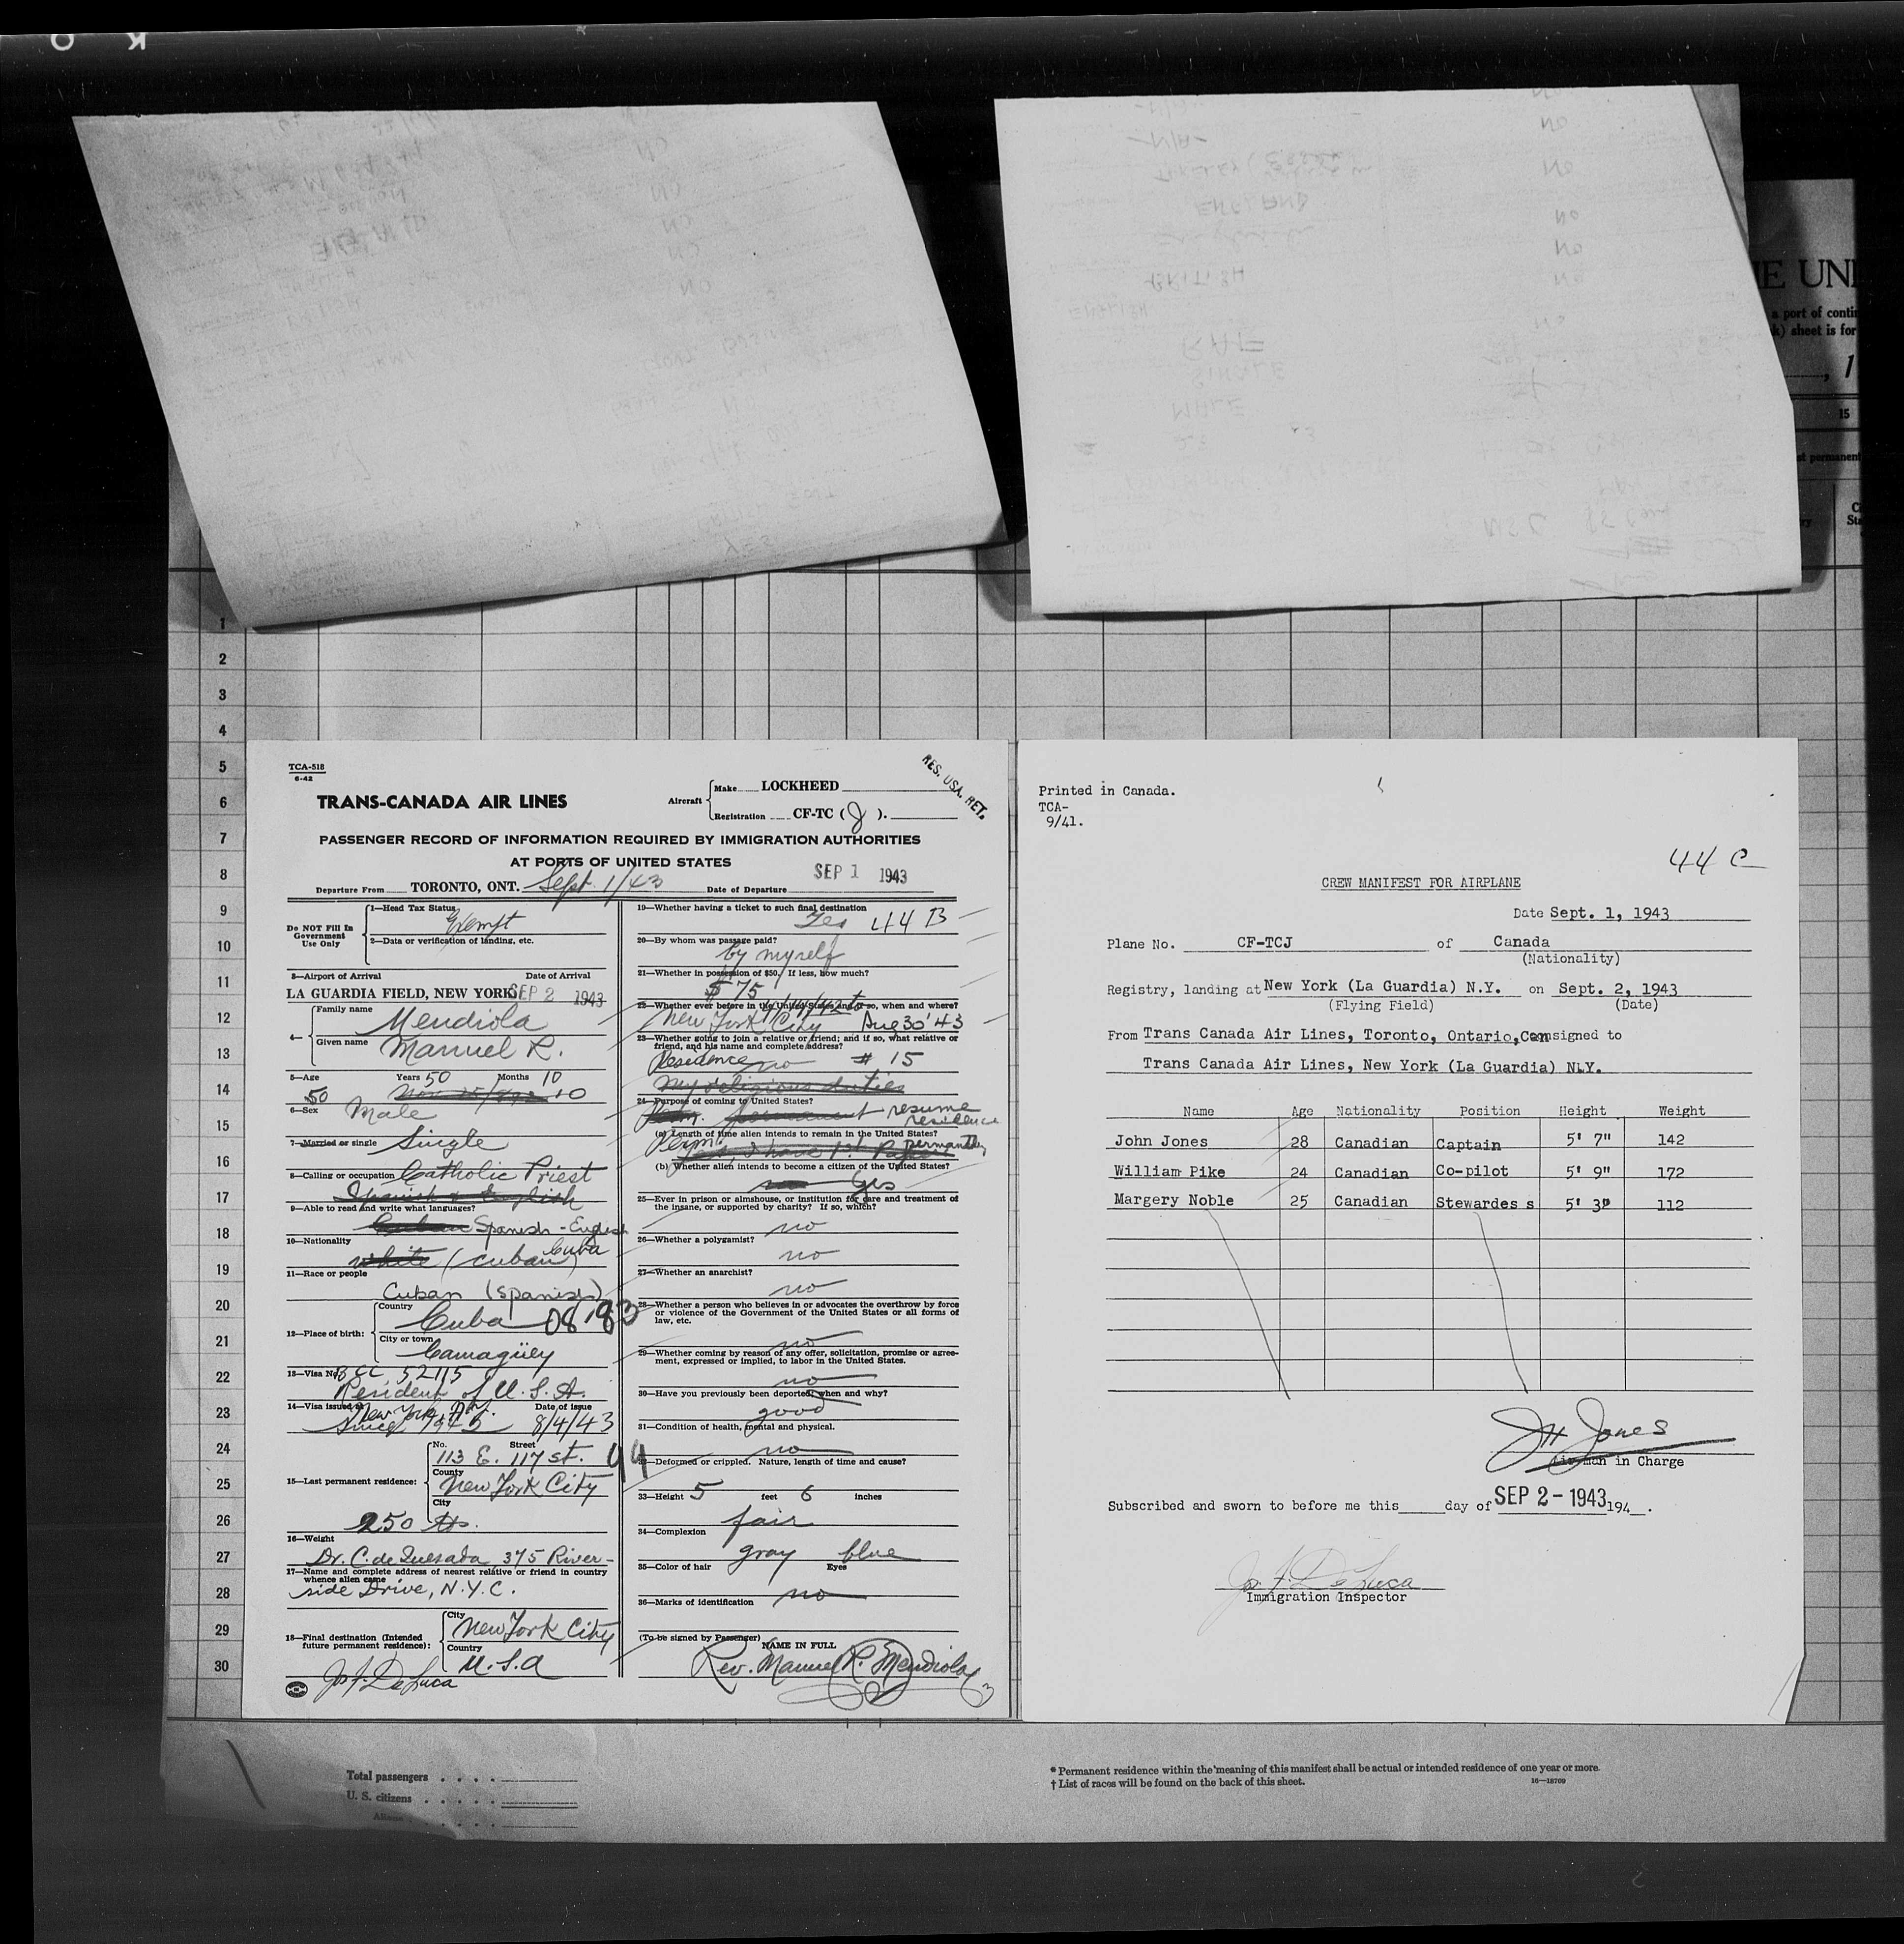 E UNI
a port of contin
k) sheet is for
, 1
15
st permanent
1
2
3
4
5
6
7
8
9
10
11
12
13
14
15
16
17
18
19
20
21
22
23
24
25
26
27
28
29
30
TCA-518
6-42
RES. USA. RET.
TRANS-CANADA AIR LINES
Aircraft
Make LOCKHEED
Registration CF-TC (J).
PASSENGER RECORD OF INFORMATION REQUIRED BY IMMIGRATION AUTHORITIES
AT PORTS OF UNITED STATES
Departure From TORONTO, ONT. Sept. 1/43 Date of Departure SEP 1 1943
Do NOT Fill In
Government
Use Only
1—Head Tax Status
Exempt
2—Data or verification of landing, etc.
3—Airport of Arrival Date of Arrival
LA GUARDIA FIELD, NEW YORK SEP 2 1943
4—
Family name
Mendiola
Given name
Manuel R.
5—Age Years 50 Months 10
50 10
6—Sex Male
7—Married or single Single
8—Calling or occupation Catholic Priest
Spanish & English
9—Able to read and write what languages?
Cuban Spanish - English
10—Nationality Cuba
white (Cuban)
11—Race or people
Cuban (Spanish)
12—Place of birth:
Country
Cuba 08 83
City or town
Camagüey
13—Visa No. 52115
Resident of U.S.A.
14—Visa issued at New York, N.Y. Date of issue
since 8/4/43
15—Last permanent residence:
No. Street
113 E. 117 st. 44
County
New York City
City
250 lbs.
16—Weight
Dr. C. de Quesada, 375 River-
17—Name and complete address of nearest relative or friend in country
whence alien came
side Drive, N.Y.C.
18—Final destination (Intended
future permanent residence):
City
New York City
Country
U.S.A
Jos. F. De Luca
19—Whether having a ticket to such final destination
Yes 44 B
20—By whom was passage paid?
by myself
21—Whether in possession of $50. If less, how much?
$75
22—Whether ever before in the United States and if so, when and where?
New York City Aug 30 '43
23—Whether going to join a relative or friend; and if so, what relative or
friend, and his name and complete address?
Residence no # 15
My religious duties
24—Purpose of coming to United States?
permanent resume
residence
(a) Length of time alien intends to remain in the United States?
Perm. Permanently
Yes, I have 1st Papers
(b) Whether alien intends to become a citizen of the United States?
Yes
25—Ever in prison or almshouse, or institution for care and treatment of
the insane, or supported by charity? If so, which?
no
26—Whether a polygamist?
no
27—Whether an anarchist?
no
28—Whether a person who believes in or advocates the overthrow by force
or violence of the Government of the United States or all forms of
law, etc.
no
29—Whether coming by reason of any offer, solicitation, promise or agree-
ment, expressed or implied, to labor in the United States.
no
30—Have you previously been deported; when and why?
good
31—Condition of health, mental and physical.
no
32—Deformed or crippled. Nature, length of time and cause?
33—Height 5 feet 6 inches
fair
34—Complexion
gray blue
35—Color of hair Eyes
36—Marks of identification no
(To be signed by Passenger)
NAME IN FULL
Rev. Manuel R. Mendiola
Printed in Canada.
TCA-
9/41.
44 C
CREW MANIFEST FOR AIRPLANE
Date Sept. 1, 1943
Plane No. CF-TCJ of Canada
(Nationality)
Registry, landing at New York (La Guardia) N.Y. on Sept. 2, 1943
(Flying Field) (Date)
From Trans Canada Air Lines, Toronto, Ontario, Consigned to
Trans Canada Air Lines, New York (La Guardia) N.Y.
Name Age Nationality Position Height Weight
John Jones 28 Canadian Captain 5' 7" 142
William Pike 24 Canadian Co-pilot 5' 9" 172
Margery Noble 25 Canadian Stewardes s 5' 3" 112
JH Jones
Airman in Charge
Subscribed and sworn to before me this day of SEP 2 - 1943 194 .
Jos. F. De Luca
Immigration Inspector
Total passengers . . . .
U. S. citizens . . . . .
Aliens
* Permanent residence within the meaning of this manifest shall be actual or intended residence of one year or more.
† List of races will be found on the back of this sheet.
16—18709